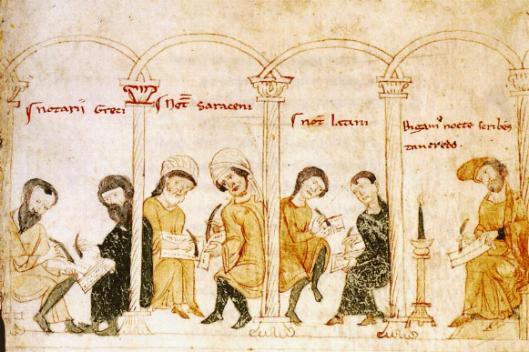 notarij Greci
Not̄ Saraceni
not̄ latini
Bigam⁹ nocte scribēs
tancredo.